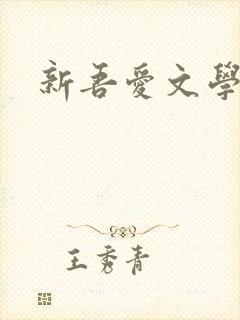 新吾愛文學
王秀青